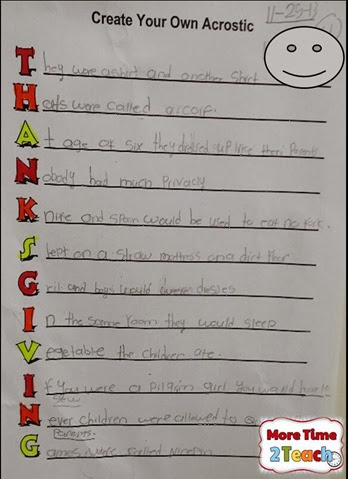 Create Your Own Acrostic
11-25-13
They wore a shirt and another shirt
Hats were called
At age of six they dressed up like their Parents
Nobody had much Privacy
Knife and spoon would be used to eat no fork.
Slept on a straw mattress on a dirt
Girl and boys would dresses
In the same room they would sleep
Vegetable the children ate.
If you were a pilgrim girl you would have to
sew
Never children were allowed to
Parents.
Games were called ninepin
More Time
2 Teach